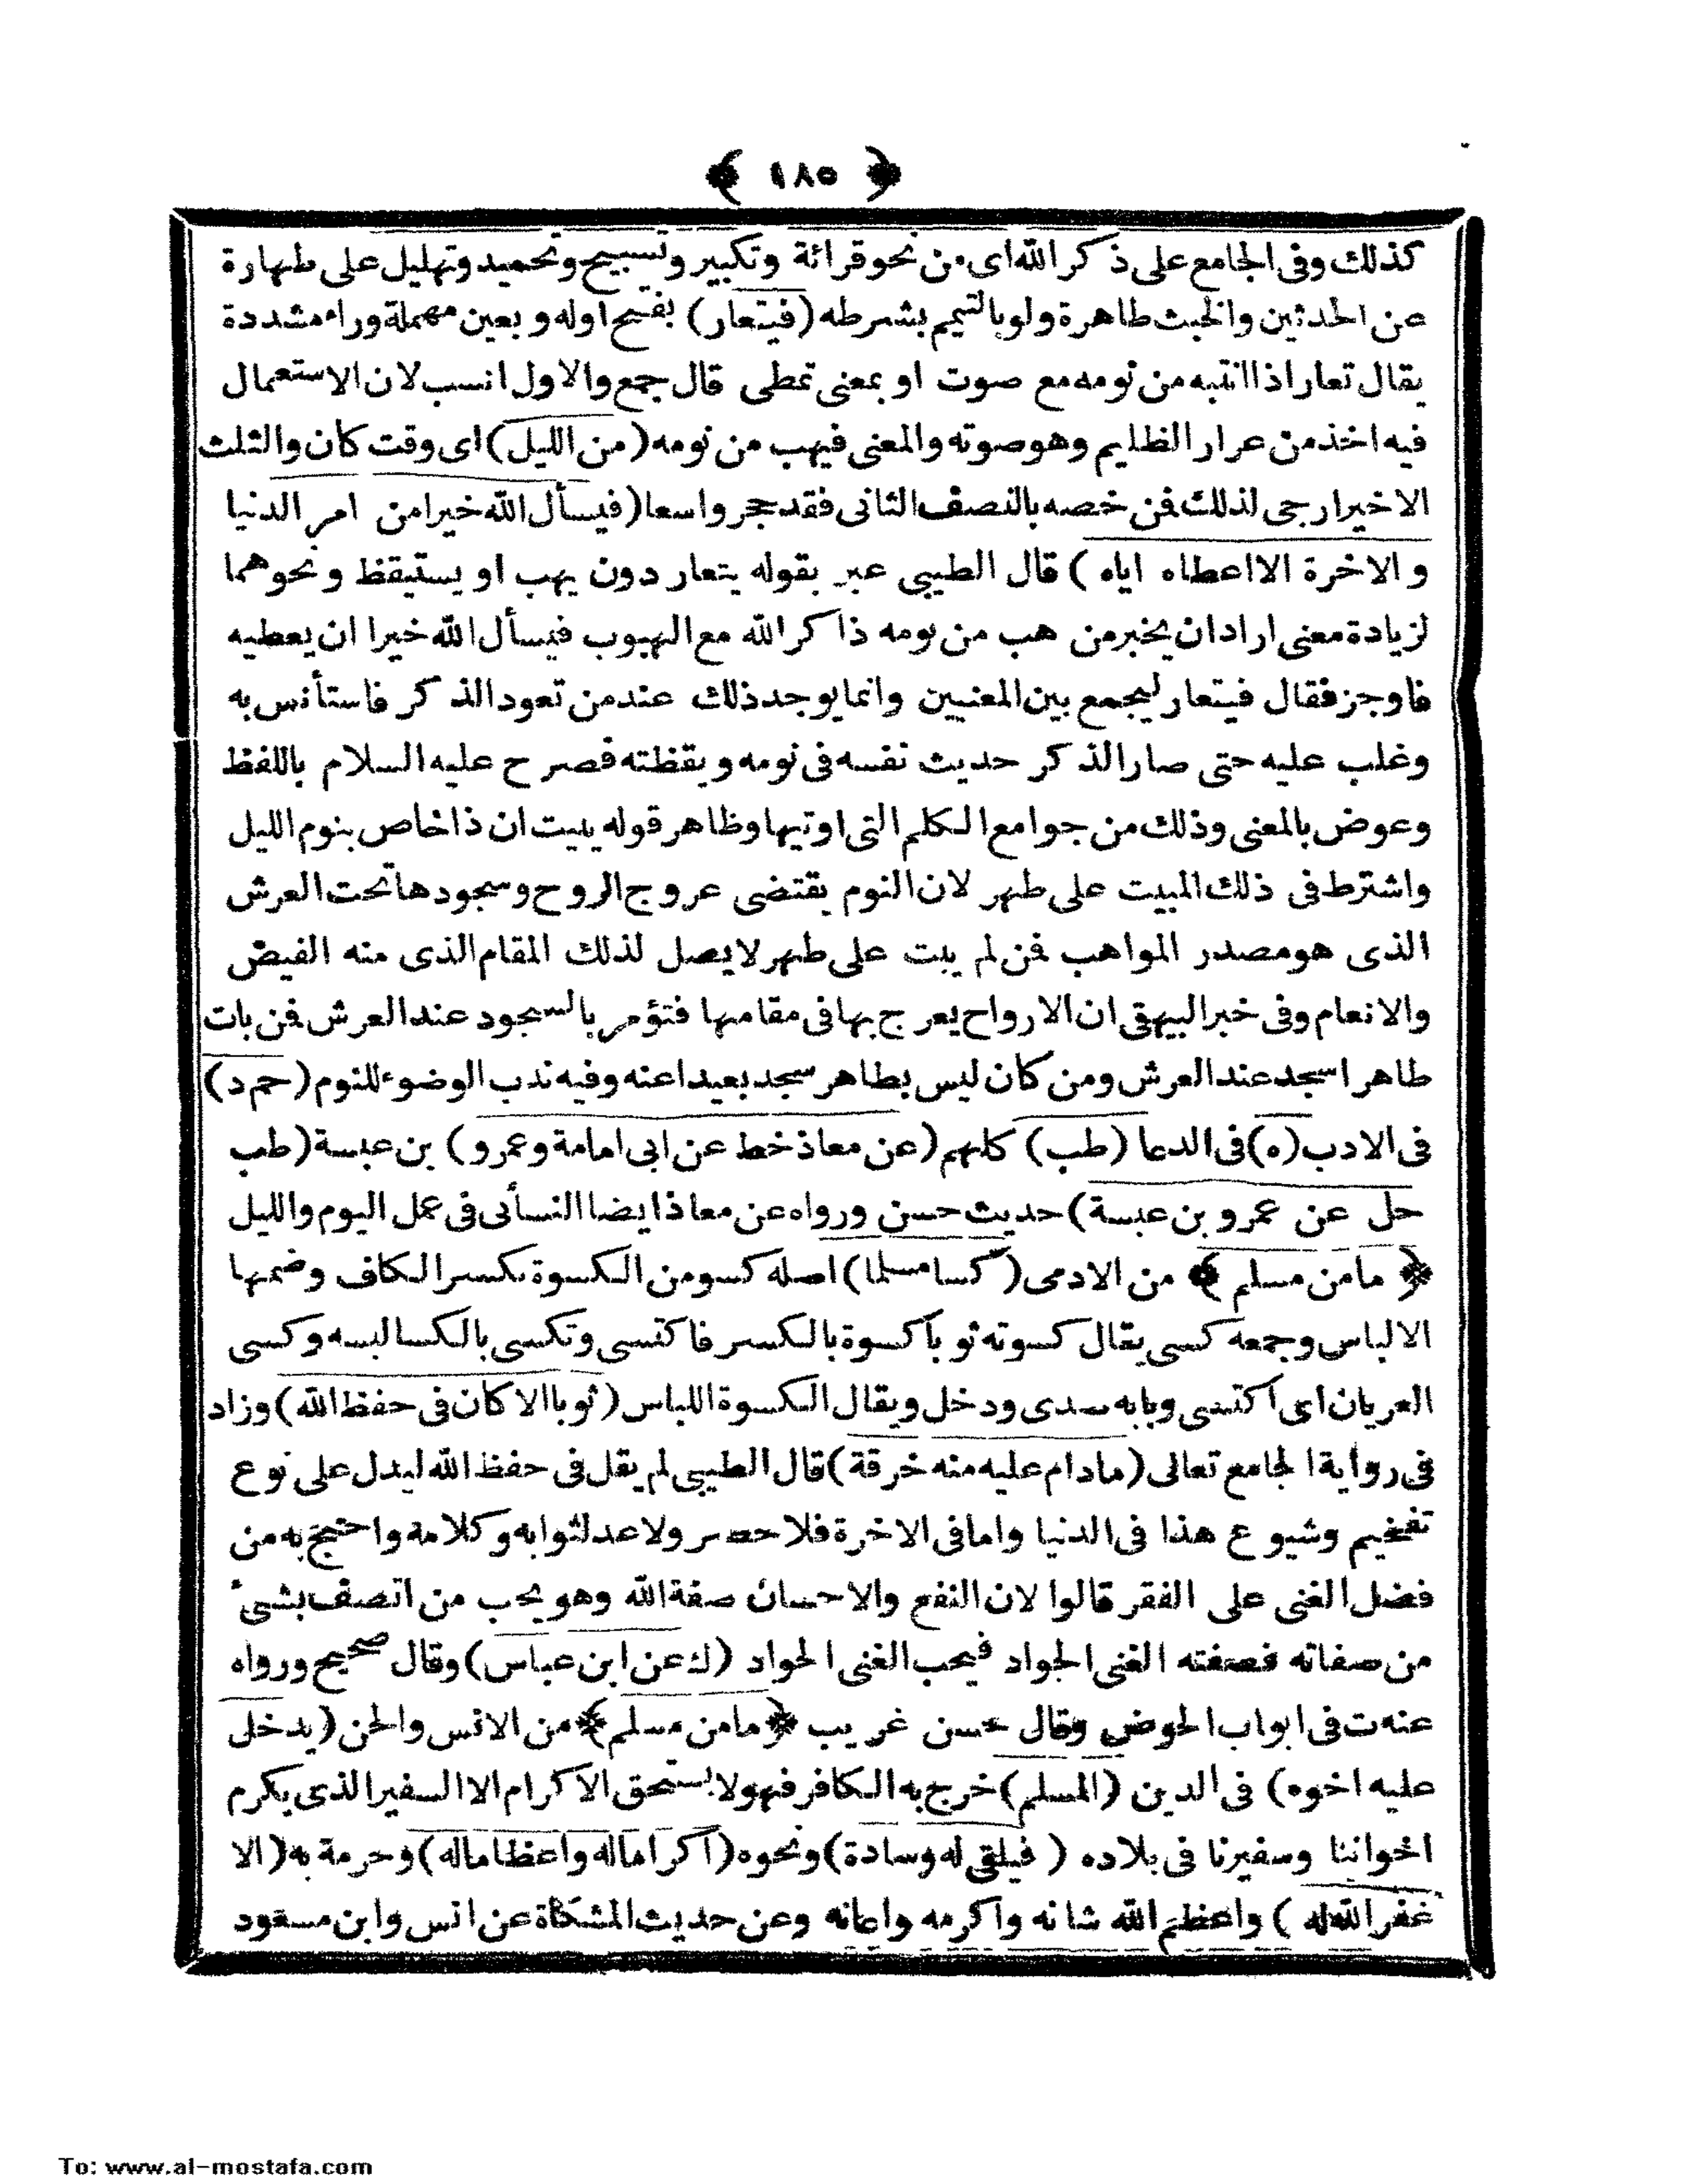 ﴿ ١٨٥ ﴾
كذلك وفى الجامع على ذكر الله اى من نحو قرائة وتكبير وتسبيح وتحميد وتهليل على طهارة
عن الحدثين والخبث طاهرة ولو بالتيمم بشرطه (فيتعار) بفتح اوله وبعين مهملة وراء مشددة
يقال تعار اذا انتبه من نومه مع صوت او بمعنى تمطى قال جمع والاول انسب لان الاستعمال
فيه اخذ من عرار الظليم وهو صوته والمعنى فيهب من نومه (من الليل) اى وقت كان والثلث
الاخير ارجى لذلك فمن خصه بالنصف الثانى فقد حجر واسعا (فيسأل الله خيرا من امر الدنيا
والاخرة الا اعطاه اياه) قال الطيبى عبر بقوله يتعار دون يهب او يستيقظ ونحوهما
لزيادة معنى اراد ان يخبر من هب من نومه ذاكر الله مع الهبوب فيسأل الله خيرا ان يعطيه
فاوجز فقال فيتعار ليجمع بين المعنيين وانما يوجد ذلك عند من تعود الذكر فاستأنس به
وغلب عليه حتى صار الذكر حديث نفسه فى نومه ويقظته فصرح عليه السلام باللفظ
وعوض بالمعنى وذلك من جوامع الكلم التى اوتيها وظاهر قوله يبيت ان ذا خاص بنوم الليل
واشترط فى ذلك المبيت على طهر لان النوم يقتضى عروج الروح وسجودها تحت العرش
الذى هو مصدر المواهب فمن لم يبت على طهر لا يصل لذلك المقام الذى منه الفيض
والانعام وفى خبر البيهقى ان الارواح يعرج بها فى مقامها فتؤمر بالسجود عند العرش فمن بات
طاهرا سجد عند العرش ومن كان ليس بطاهر سجد بعيدا عنه وفيه ندب الوضوء للنوم (حم د)
فى الادب (ه) فى الدعا (طب) كلهم (عن معاذ خط عن ابى امامة وعمرو) بن عبسة (طب
حل عن عمرو بن عبسة) حديث حسن ورواه عن معاذ ايضا النسأئى فى عمل اليوم والليل
﴿ مامن مسلم ﴾ من الادمى (كسا مسلما) اصله كسو من الكسوة بكسر الكاف وضمها
الالباس وجمعه كسى يقال كسوته ثوبا كسوة بالكسر فاكتسى وتكسى بالكسا لبسه وكسى
العريان اى اكتسى وبابه صدى ودخل ويقال الكسوة اللباس (ثوبا الا كان فى حفظ الله) وزاد
فى رواية الجامع تعالى (مادام عليه منه خرقة) قال الطيبى لم يقل فى حفظ الله ليدل على نوع
تفخيم وشيوع هذا فى الدنيا واما فى الاخرة فلا حصر ولا عد لثوابه وكلامه واحتج به من
فضل الغنى على الفقر قالوا لان النفع والاحسان صفة الله وهو يحب من اتصف بشئ
من صفاته فصفته الغنى الجواد فيحب الغنى الجواد (ك عن ابن عباس) وقال صحيح ورواه
عنه ت فى ابواب الحوض وقال حسن غريب ﴿مامن مسلم﴾ من الانس والجن (يدخل
عليه اخوه) فى الدين (المسلم) خرج به الكافر فهو لا يستحق الاكرام الا السفير الذى يكرم
اخواننا وسفيرنا فى بلاده (فيلقى له وسادة) ونحوه (اكراما له واعظاما له) وحرمة به (الا
غفر الله له) واعظم الله شانه واكرمه واعانه وعن حديث المشكاة عن انس وابن مسعود
To: www.al-mostafa.com